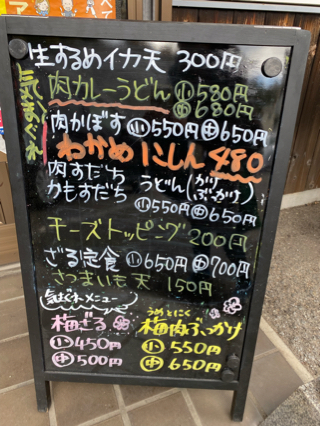 生するめイカ天 300円
気まぐれ
肉カレーうどん 小580円
中680円
肉かぼす 小550円 中650円
わかめにしん480
肉すだち
かもすだち うどん(かけ ぶっかけ)
小550円 中650円
チーズトッピング200円
ざる定食 小650円 中700円
さつまいも天 150円
気まぐれメニュー
梅ざる
小450円
中500円
うめとにく
梅肉ぶっかけ
小 550円
中 650円